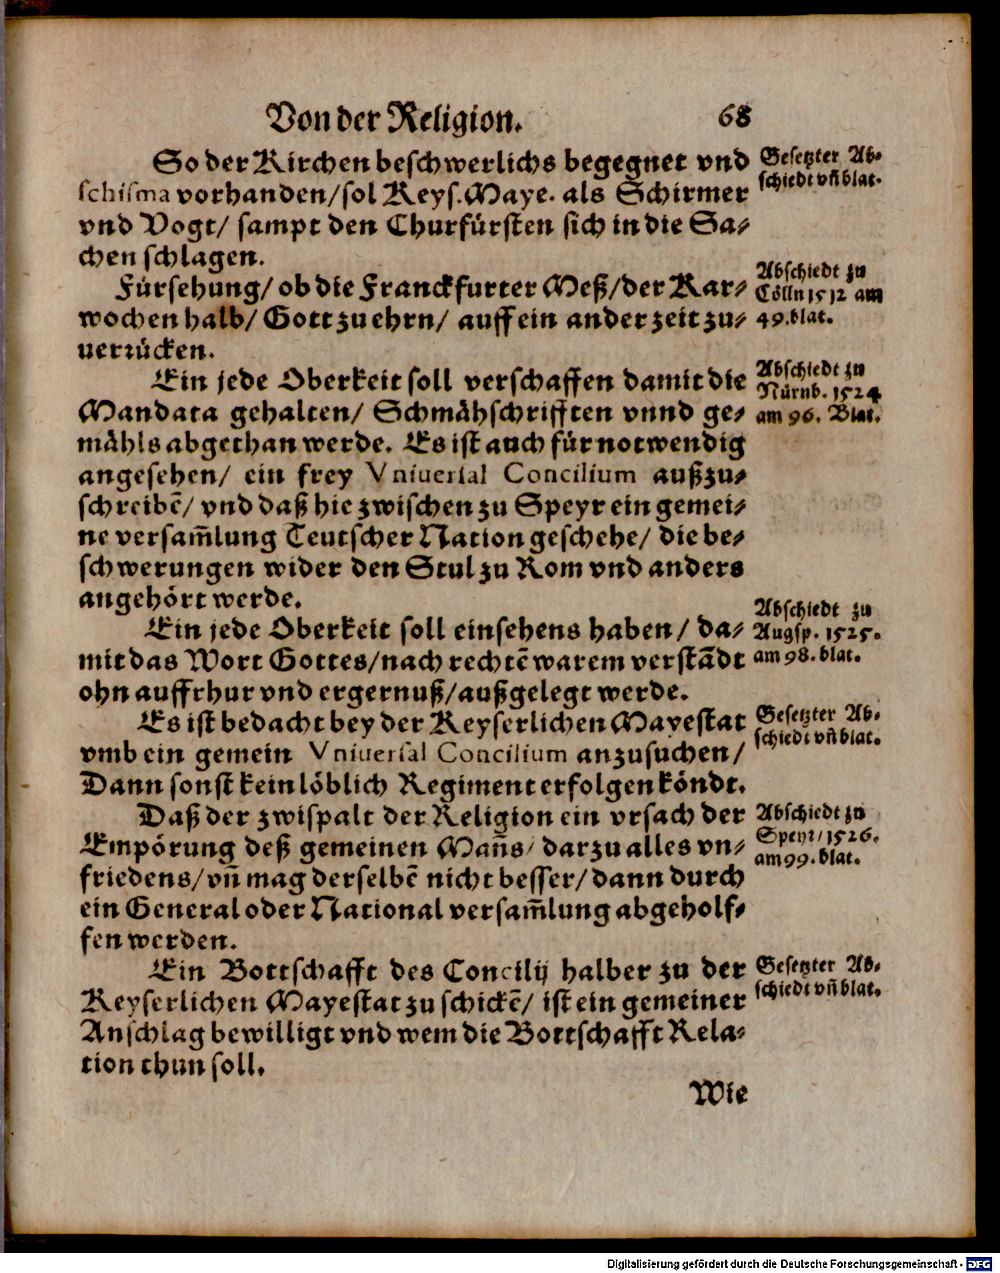 Von der Religion. 68
So der Kirchen beschwerlichs begegnet vnd
schisma vorhanden/ sol Keys. Maye. als Schirmer
vnd Vogt/ sampt den Churfürsten sich in die Sa⸗
chen schlagen.
Gesetzter Ab⸗
schiedt vñ blat.
Fürsehung/ ob die Franckfurter Meß/ der Kar⸗
wochen halb/ Gott zu ehrn/ auff ein ander zeit zu⸗
uerrücken.
Abschiedt zu
Cölln 1512 am
49. blat.
Ein jede Oberkeit soll verschaffen damit die
Mandata gehalten/ Schmähschrifften vnnd ge⸗
mähls abgethan werde. Es ist auch für notwendig
angesehen/ ein frey Vniuersal Concilium außzu⸗
schreibē/ vnd daß hie zwischen zu Speyr ein gemei⸗
ne versam̃lung Teutscher Nation geschehe/ die be⸗
schwerungen wider den Stul zu Rom vnd anders
angehört werde.
Abschiedt zu
Nürnb. 1524
am 96. Blat.
Ein jede Oberkeit soll einsehens haben/ da⸗
mit das Wort Gottes/ nach rechtē warem verstādt
ohn auffrhur vnd ergernuß/ außgelegt werde.
Abschiedt zu
Augsp. 1525.
am 98. blat.
Es ist bedacht bey der Keyserlichen Mayestat
vmb ein gemein Vniuersal Concilium anzusuchen/
Dann sonst kein löblich Regiment erfolgen köndt.
Gesetzter Ab⸗
schiedt vñ blat.
Daß der zwispalt der Religion ein vrsach der
Empörung deß gemeinen Mañs/ darzu alles vn⸗
friedens/ vñ mag derselbē nicht besser/ dann durch
ein General oder National versam̃lung abgeholf⸗
fen werden.
Abschiedt zu
Speyr/ 1526.
am 99. blat.
Ein Bottschafft des Concilij halber zu der
Keyserlichen Mayestat zu schickē/ ist ein gemeiner
Anschlag bewilligt vnd wem die Bottschafft Rela⸗
tion thun soll.
Gesetzter Ab⸗
schiedt vñ blat.
Wie
Digitalisierung gefördert durch die Deutsche Forschungsgemeinschaft - DFG